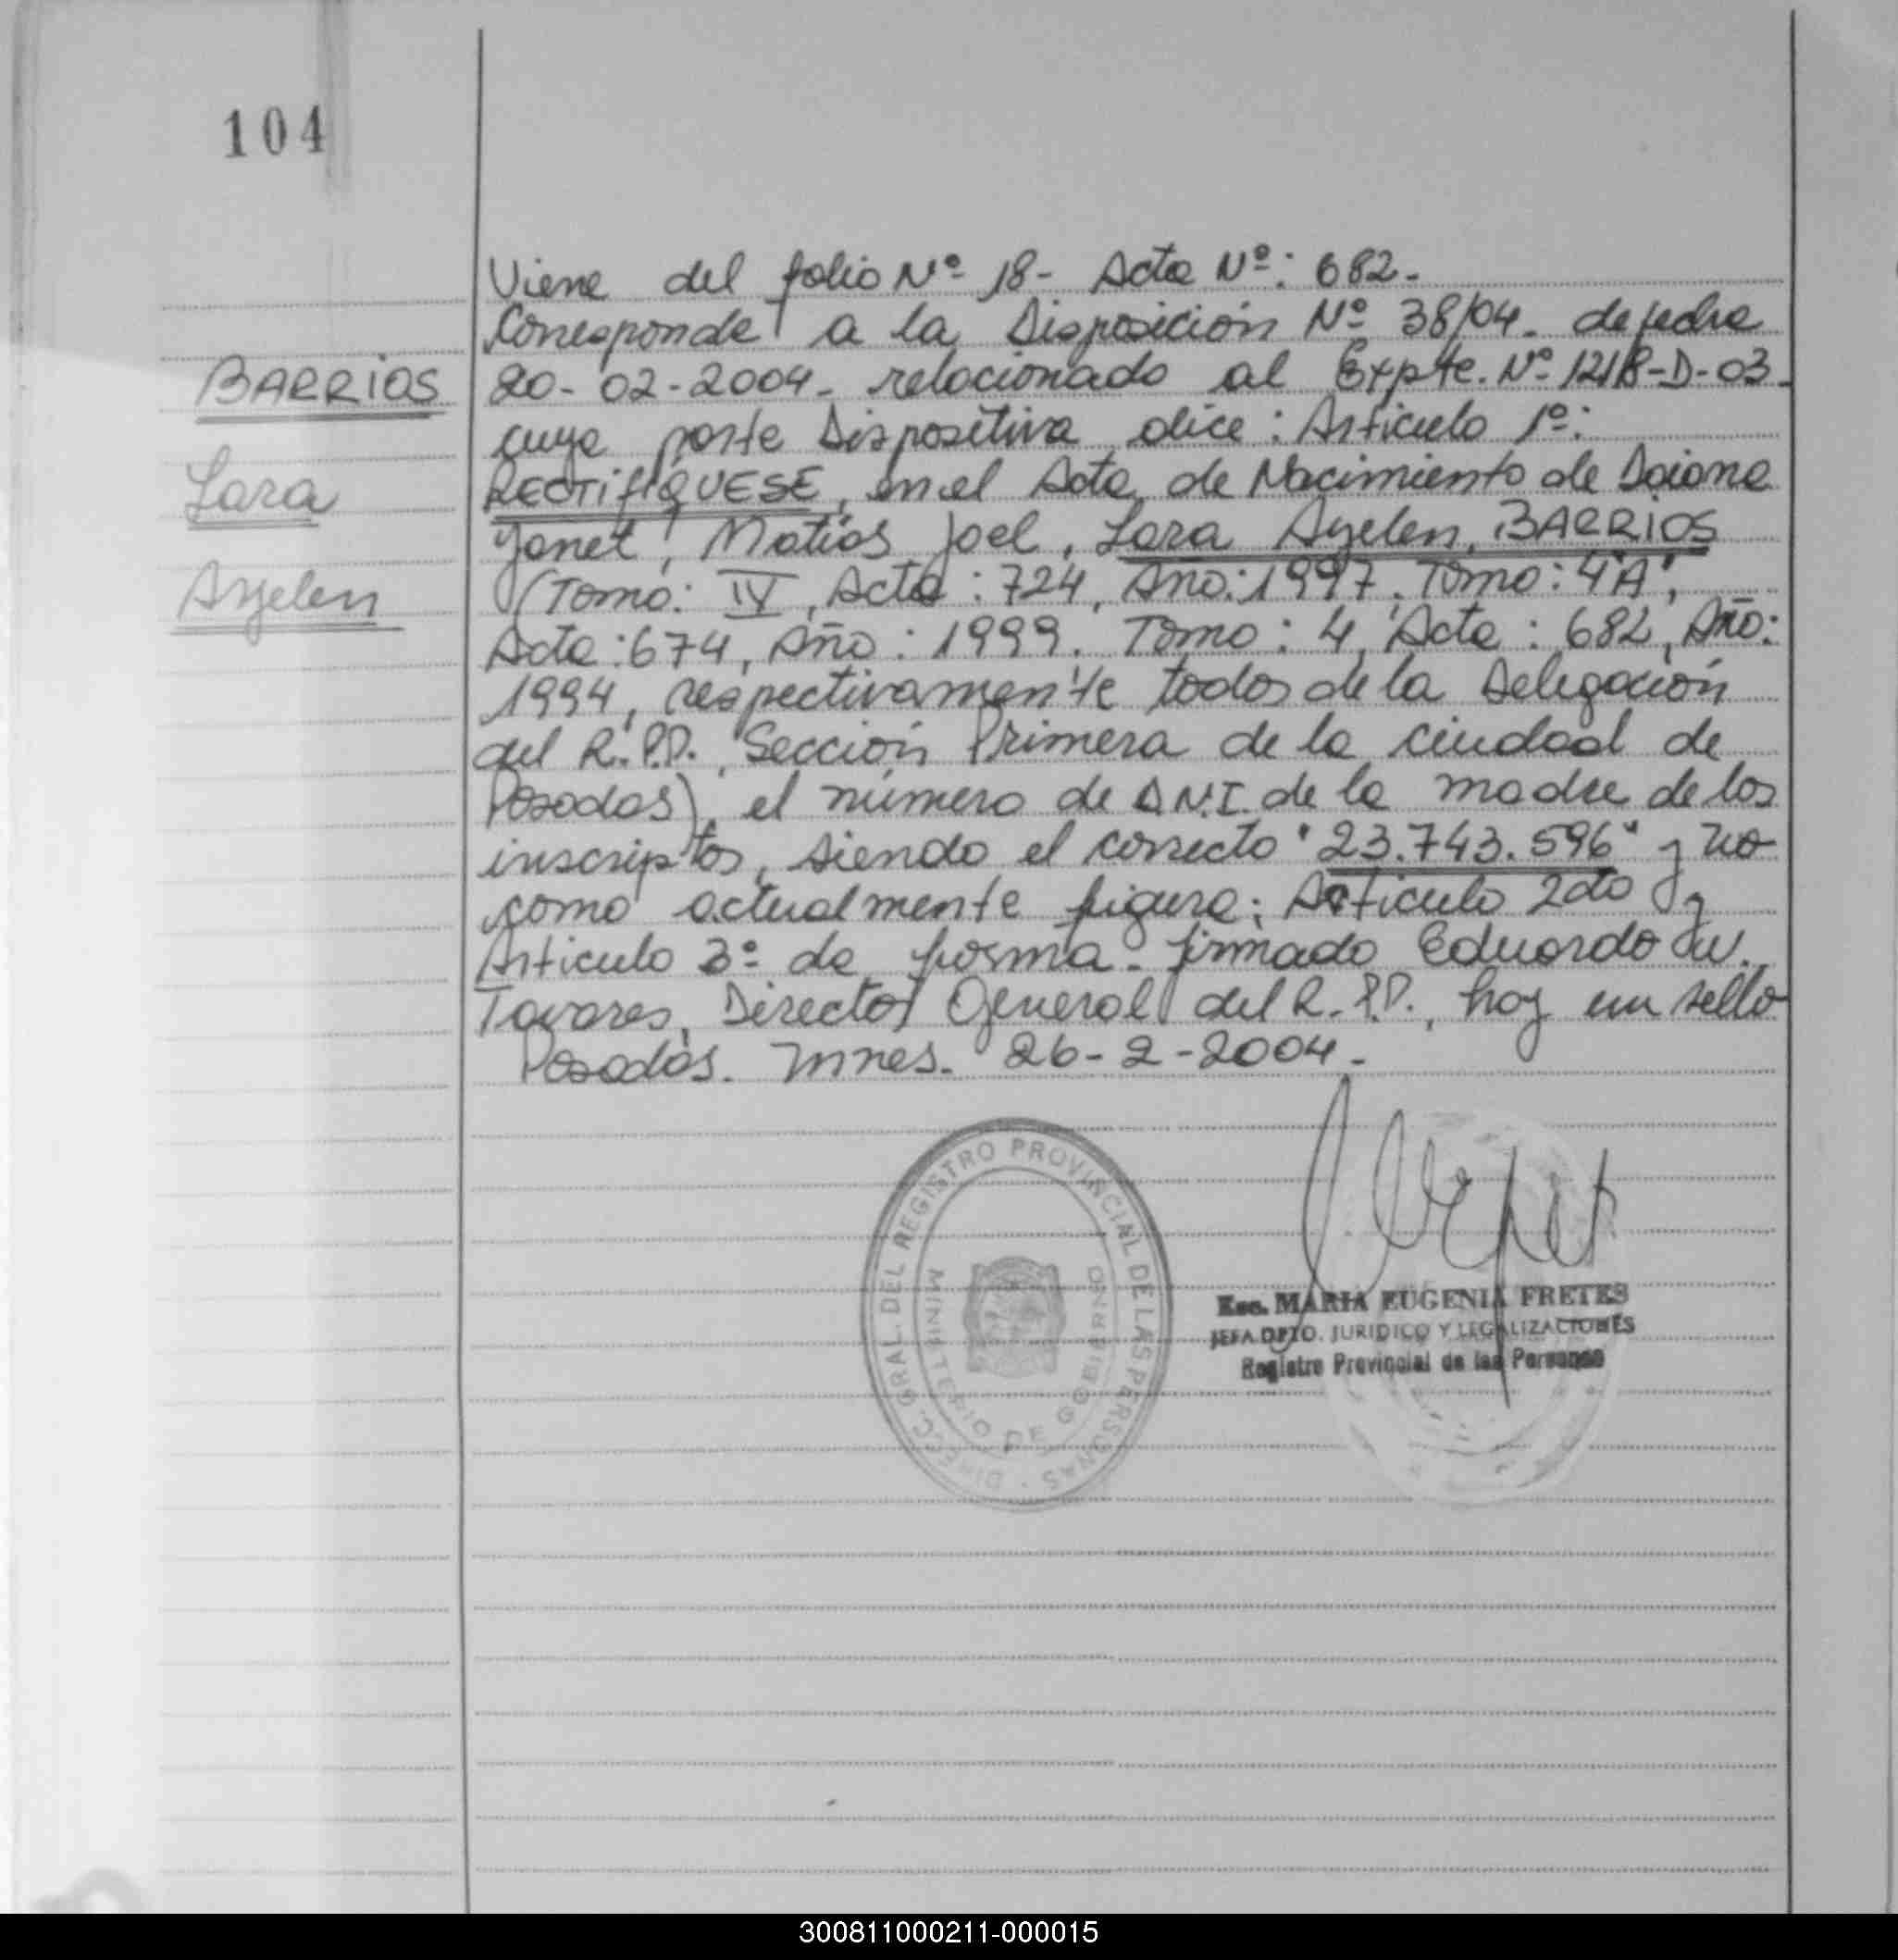 104
Viene del folio Nº 18- Acta Nº: 682-
Corresponde a la Disposición Nº 38/04. de fecha
BARRIOS
20-02-2004- relacionado al Expte. Nº
cuya parte Dispositiva dice: Artículo 1º:
Lara
RECTIFIQUESE, en el Acta de Nacimiento de Daiana
Yanet, Matías Joel, Lara Ayelen, BARRIOS
Ayelen
(Tomo: IV, Acta: 724, Año: 1997, Tomo: 4"A",
Acta: 674, Año: 1999. Tomo: 4, Acta: 682, Año:
1994, respectivamente todos de la Delegación
del R.P.P., Sección Primera de la ciudad de
Posadas), el número de D.N.I. de la madre de los
inscriptos, siendo el correcto "23.743.596" y no
como actualmente figura; Artículo 2do y
Artículo 3º de forma. firmado Eduardo
Tavares, Director General del R.P.P., hay un sello
Posadas. Mnes. 26-2-2004.
DIREC. GRAL. DEL REGISTRO PROVINCIAL DE LAS PERSONAS
MINISTERIO DE GOBIERNO
Esc. MARIA EUGENIA FRETES
JEFA DPTO. JURIDICO Y LEGALIZACIONES
Registro Provincial de las Personas
300811000211-000015